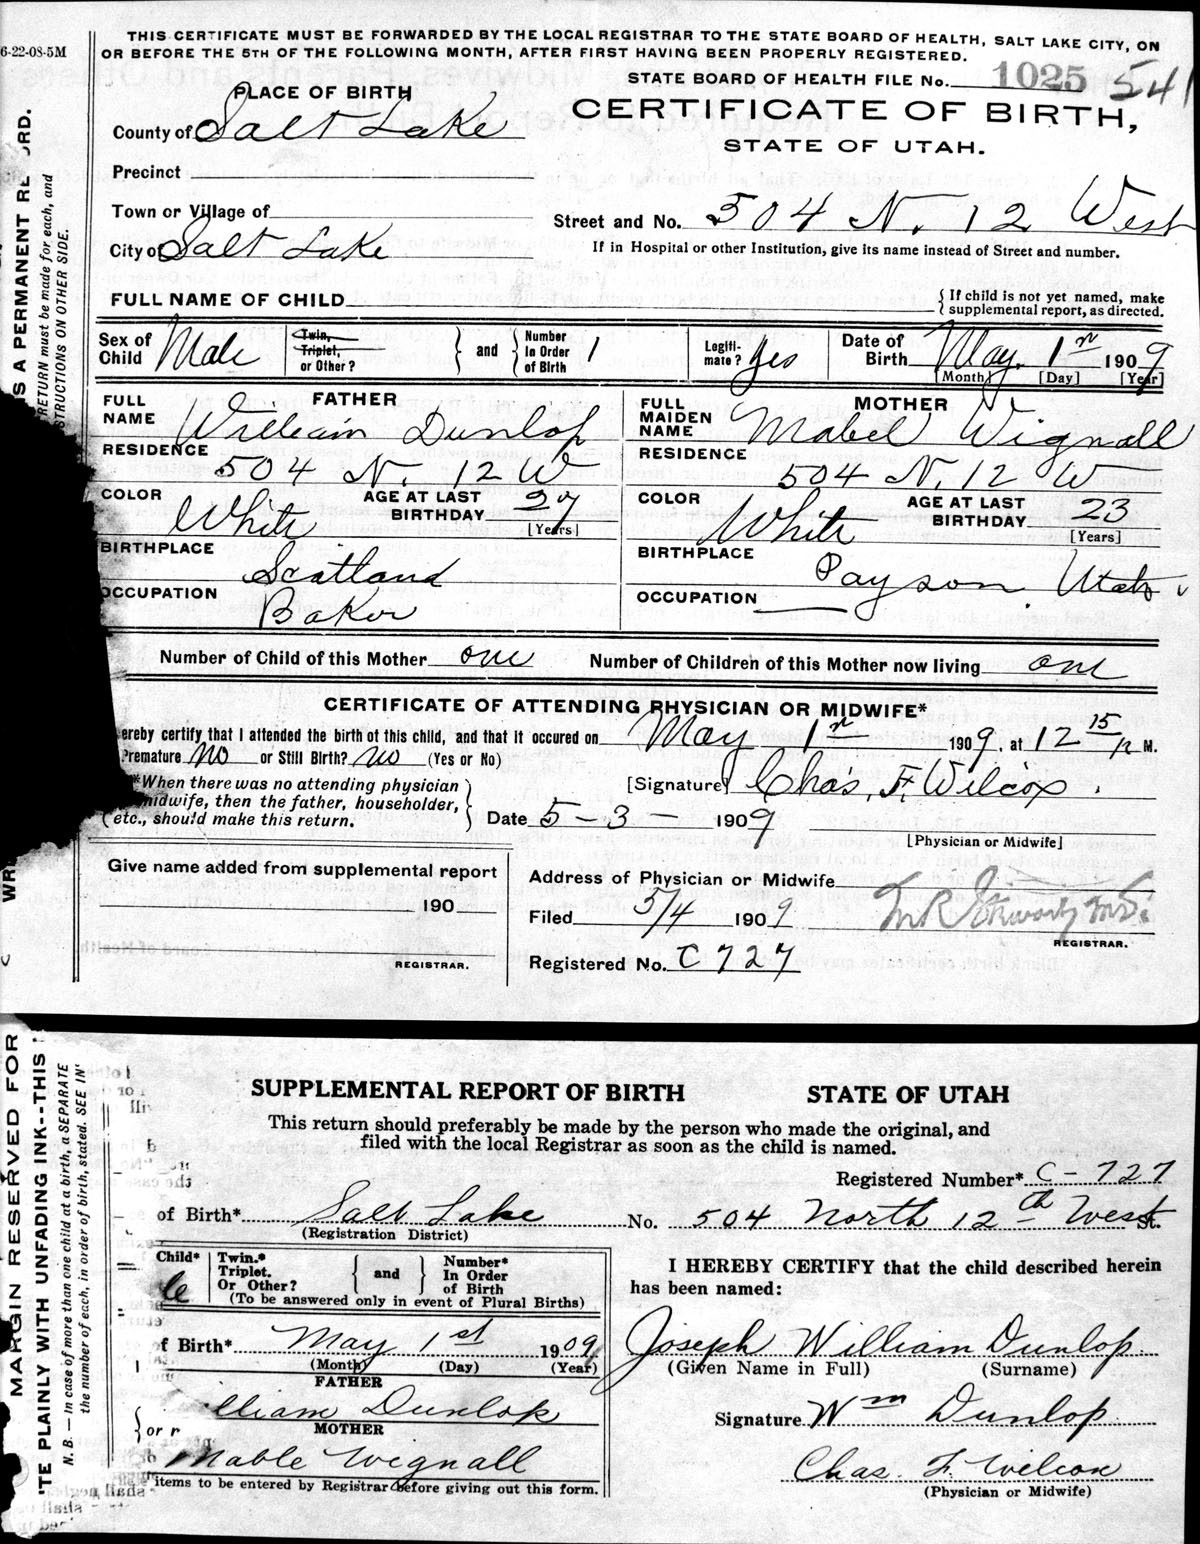 6-22-08-5M
THIS CERTIFICATE MUST BE FORWARDED BY THE LOCAL REGISTRAR TO THE STATE BOARD OF HEALTH, SALT LAKE CITY, ON
OR BEFORE THE 5TH OF THE FOLLOWING MONTH, AFTER FIRST HAVING BEEN PROPERLY REGISTERED.
STATE BOARD OF HEALTH FILE No. 1025 541
PLACE OF BIRTH
CERTIFICATE OF BIRTH,
STATE OF UTAH.
County of Salt Lake
Precinct
Town or Village of
Street and No. 504 N. 12 West
City of Salt Lake
If in Hospital or other Institution, give its name instead of Street and number.
FULL NAME OF CHILD
{ If child is not yet named, make
supplemental report, as directed.
Sex of Child Male
Twin, Triplet, or Other? } and { Number In Order of Birth 1
Legiti-mate? yes
Date of Birth May 1 1909
[Month] [Day] [Year]
FATHER
FULL NAME William Dunlop
RESIDENCE 504 N. 12 W
COLOR White AGE AT LAST BIRTHDAY 27 [Years]
BIRTHPLACE Scotland
OCCUPATION Baker
MOTHER
FULL MAIDEN NAME Mabel Wignall
RESIDENCE 504 N. 12 W
COLOR White AGE AT LAST BIRTHDAY 23 [Years]
BIRTHPLACE Payson, Utah
OCCUPATION
Number of Child of this Mother one Number of Children of this Mother now living one
CERTIFICATE OF ATTENDING PHYSICIAN OR MIDWIFE*
ereby certify that I attended the birth of this child, and that it occured on May 1 1909, at 12 15 M.
Premature No or Still Birth? No (Yes or No)
*When there was no attending physician
midwife, then the father, householder,
etc., should make this return.
[Signature] Chas. F. Wilcox.
Date 5-3- 1909
[Physician or Midwife]
Give name added from supplemental report
190
REGISTRAR.
Address of Physician or Midwife
Filed 5/4 1909
REGISTRAR.
Registered No. C 727
S A PERMANENT RE ORD.
RETURN must be made for each, and
STRUCTIONS ON OTHER SIDE.
WR
SUPPLEMENTAL REPORT OF BIRTH STATE OF UTAH
This return should preferably be made by the person who made the original, and
filed with the local Registrar as soon as the child is named.
Registered Number* C-727
of Birth* Salt Lake No. 504 North 12th West St.
(Registration District)
Child* le
Twin.* Triplet. Or Other? { and } Number* In Order of Birth
(To be answered only in event of Plural Births)
I HEREBY CERTIFY that the child described herein
has been named:
of Birth* May 1st 1909
(Month) (Day) (Year)
Joseph William Dunlop
(Given Name in Full) (Surname)
FATHER
illiam Dunlop
Signature Wm Dunlop
MOTHER
Mable Wignall
Chas. F. Wilcox
(Physician or Midwife)
items to be entered by Registrar before giving out this form.
MARGIN RESERVED FOR
TE PLAINLY WITH UNFADING INK--THIS
N. B. — In case of more than one child at a birth, a SEPARATE
the number of each, in order of birth, stated. SEE IN